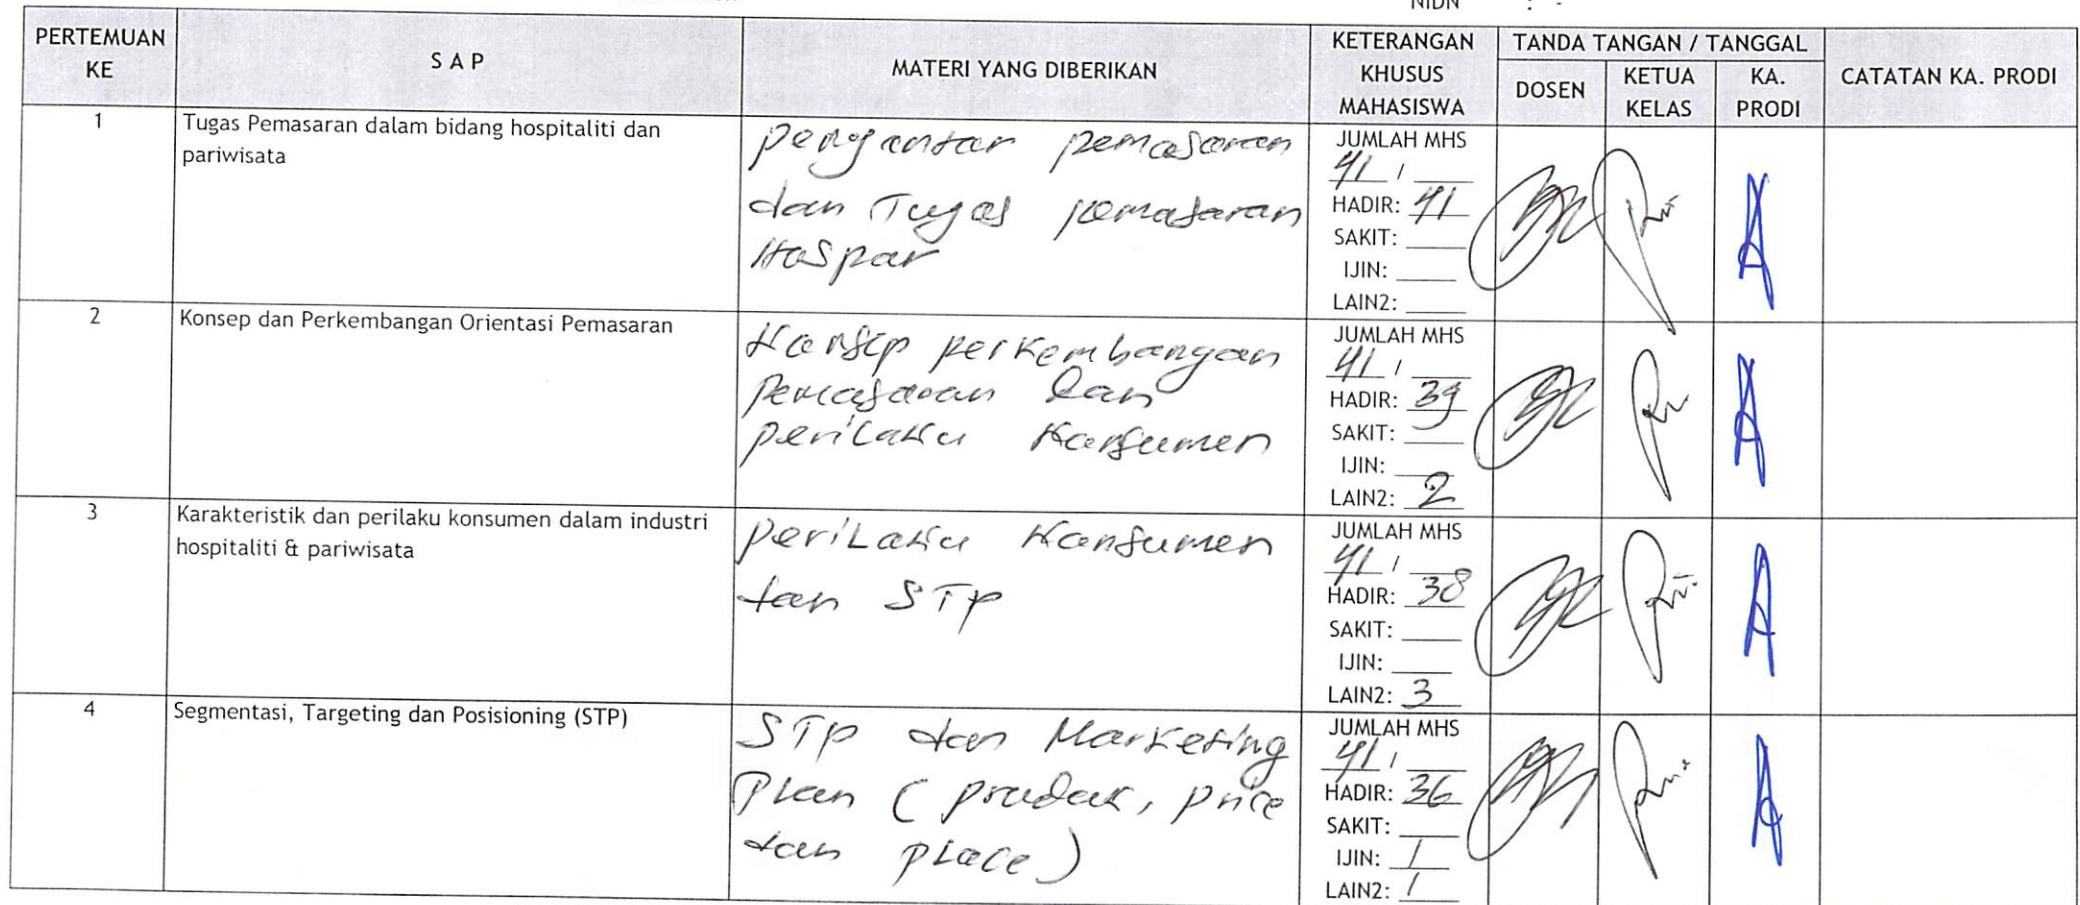 NIDN : -
PERTEMUAN KE
S A P
MATERI YANG DIBERIKAN
KETERANGAN KHUSUS MAHASISWA
TANDA TANGAN / TANGGAL
DOSEN
KETUA KELAS
KA. PRODI
CATATAN KA. PRODI
1
Tugas Pemasaran dalam bidang hospitaliti dan
pariwisata
pengantar pemasaran
dan Tugas pemasaran
Hospar
JUMLAH MHS
41 / ____
HADIR: 41
SAKIT: ____
IJIN: ____
LAIN2: ____
2
Konsep dan Perkembangan Orientasi Pemasaran
Konsep perkembangan
pemasaran dan
perilaku Konsumen
JUMLAH MHS
41 / ____
HADIR: 39
SAKIT: ____
IJIN: ____
LAIN2: 2
3
Karakteristik dan perilaku konsumen dalam industri
hospitaliti & pariwisata
periLaku Konsumen
dan STP
JUMLAH MHS
41 / ____
HADIR: 38
SAKIT: ____
IJIN: ____
LAIN2: 3
4
Segmentasi, Targeting dan Posisioning (STP)
STP dan Marketing
Plan ( produk, price
dan place )
JUMLAH MHS
41 / ____
HADIR: 36
SAKIT: ____
IJIN: 1
LAIN2: 1